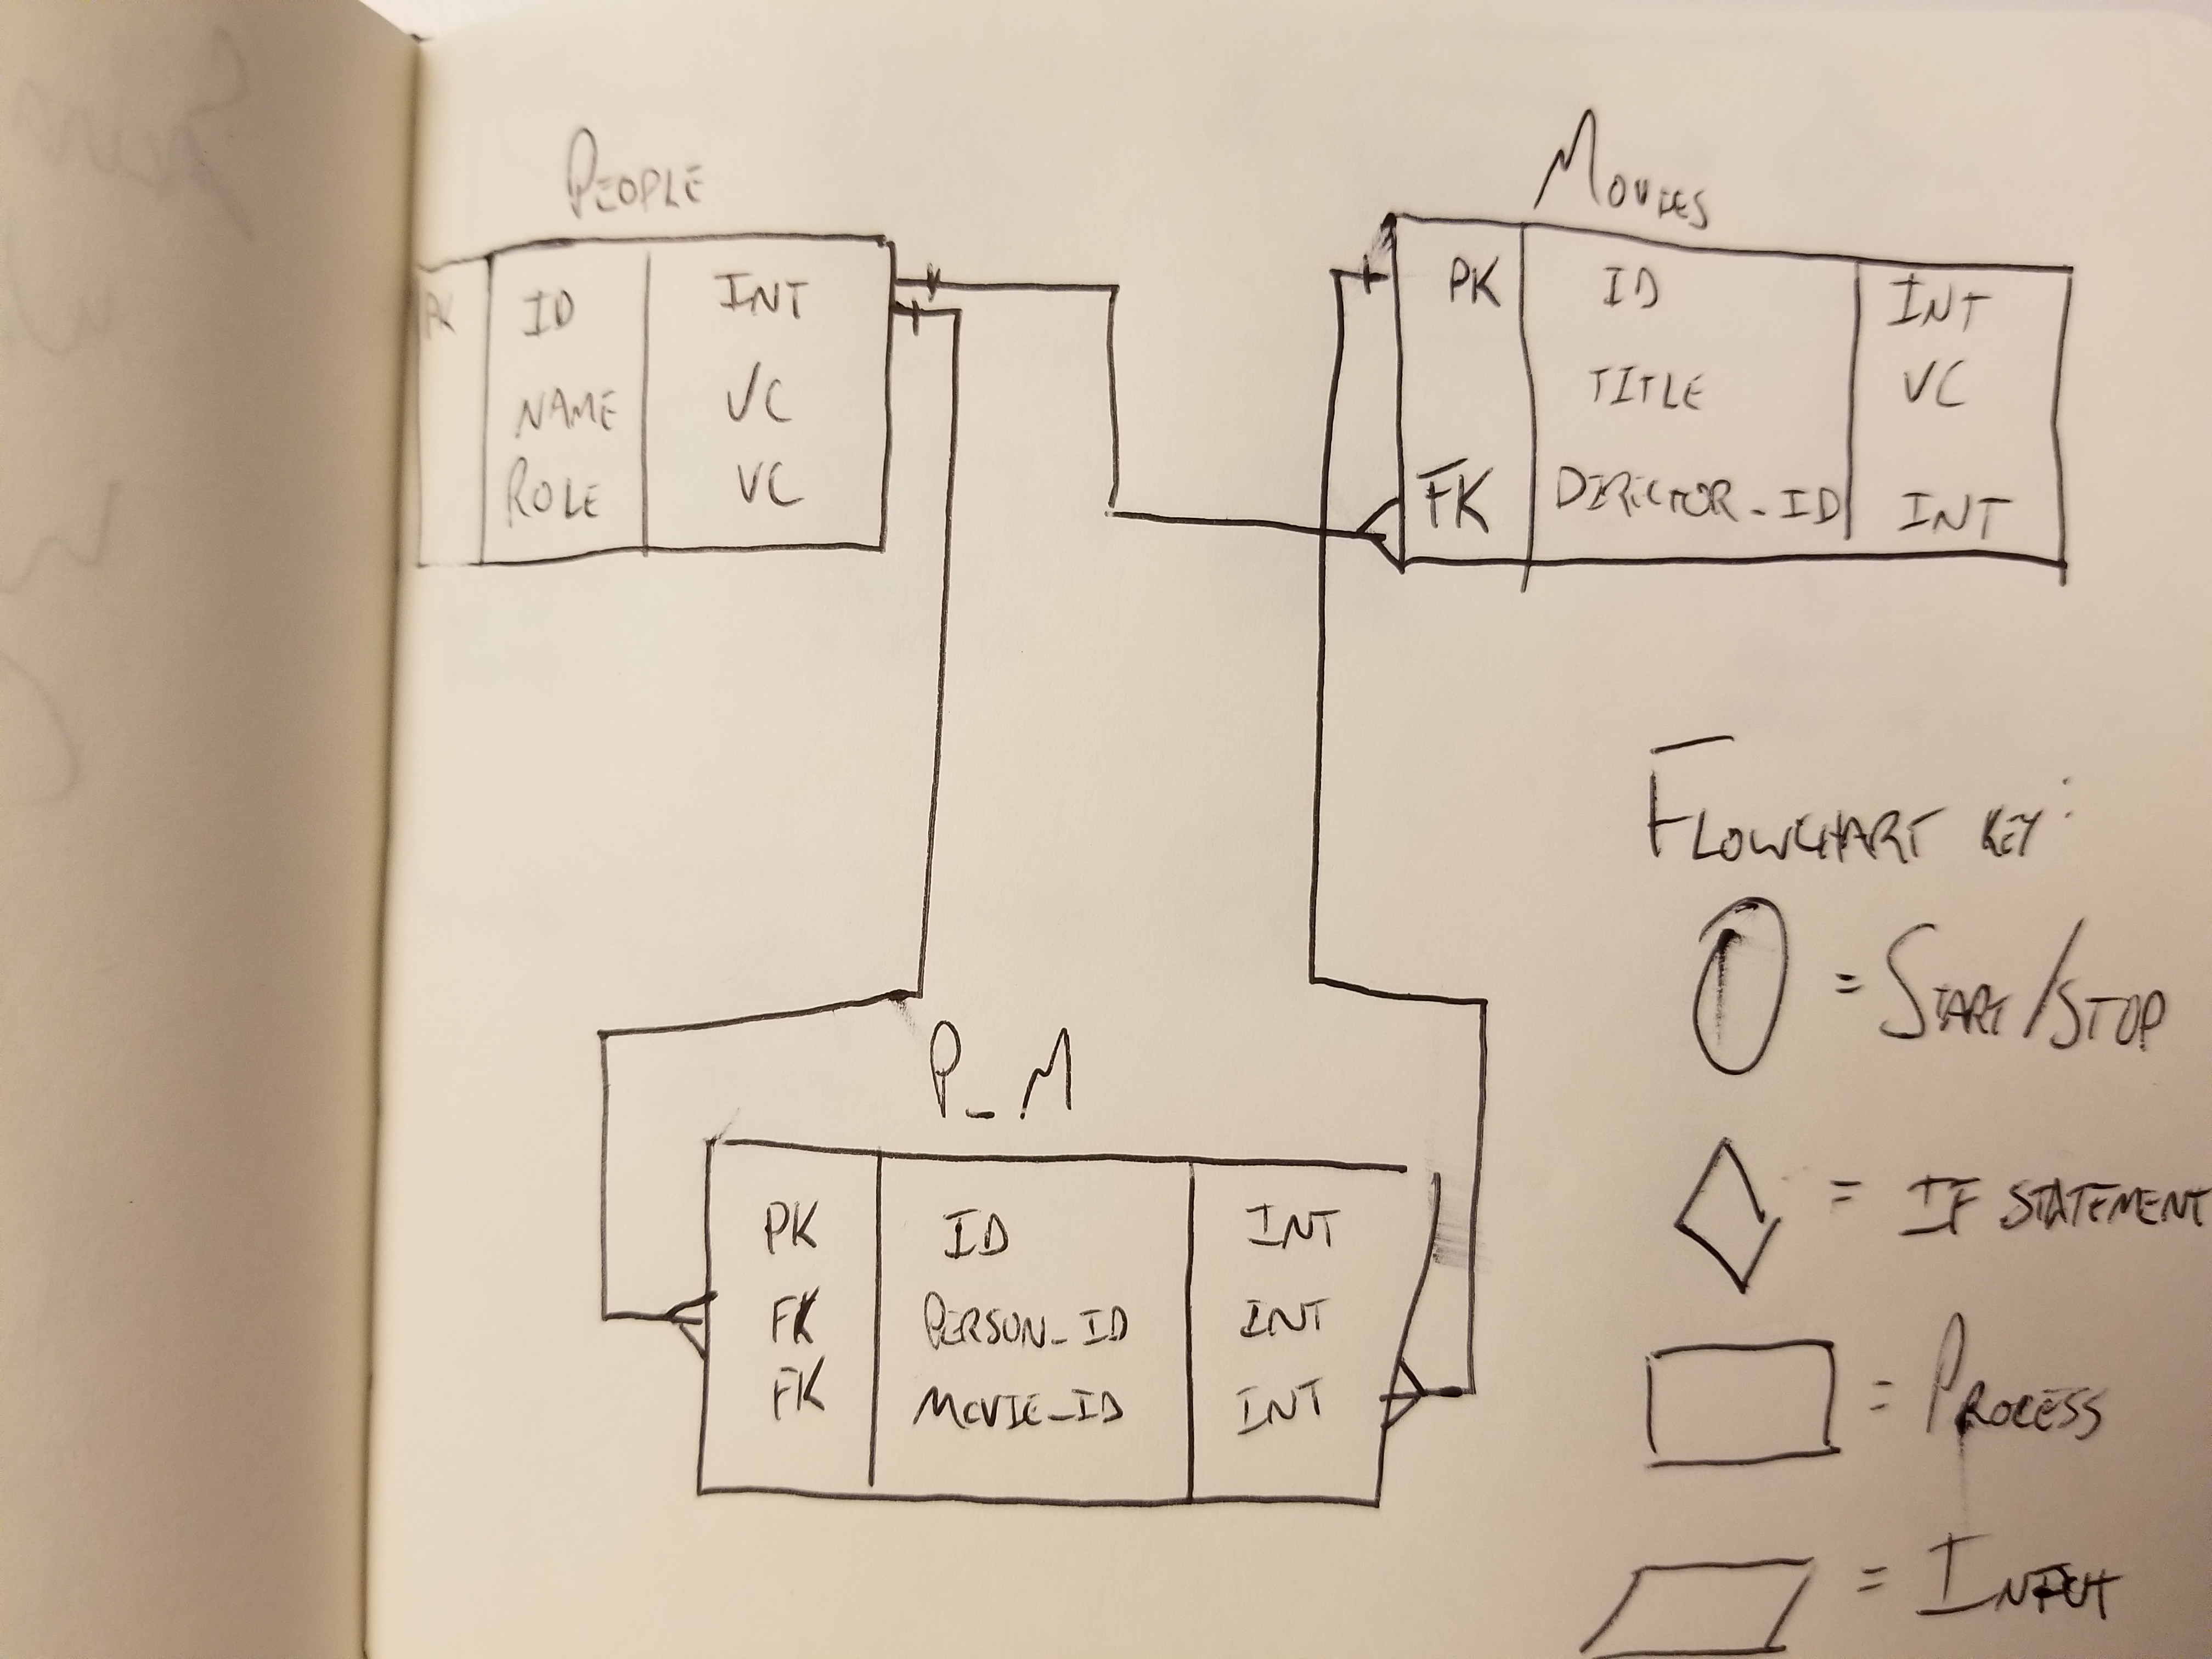 PEOPLE
PK ID INT
NAME VC
ROLE VC
MOVIES
PK ID INT
TITLE VC
FK DIRECTOR_ID INT
P_M
PK ID INT
FK PERSON_ID INT
FK MOVIE_ID INT
FLOWCHART KEY:
= START/STOP
= IF STATEMENT
= PROCESS
= INPUT